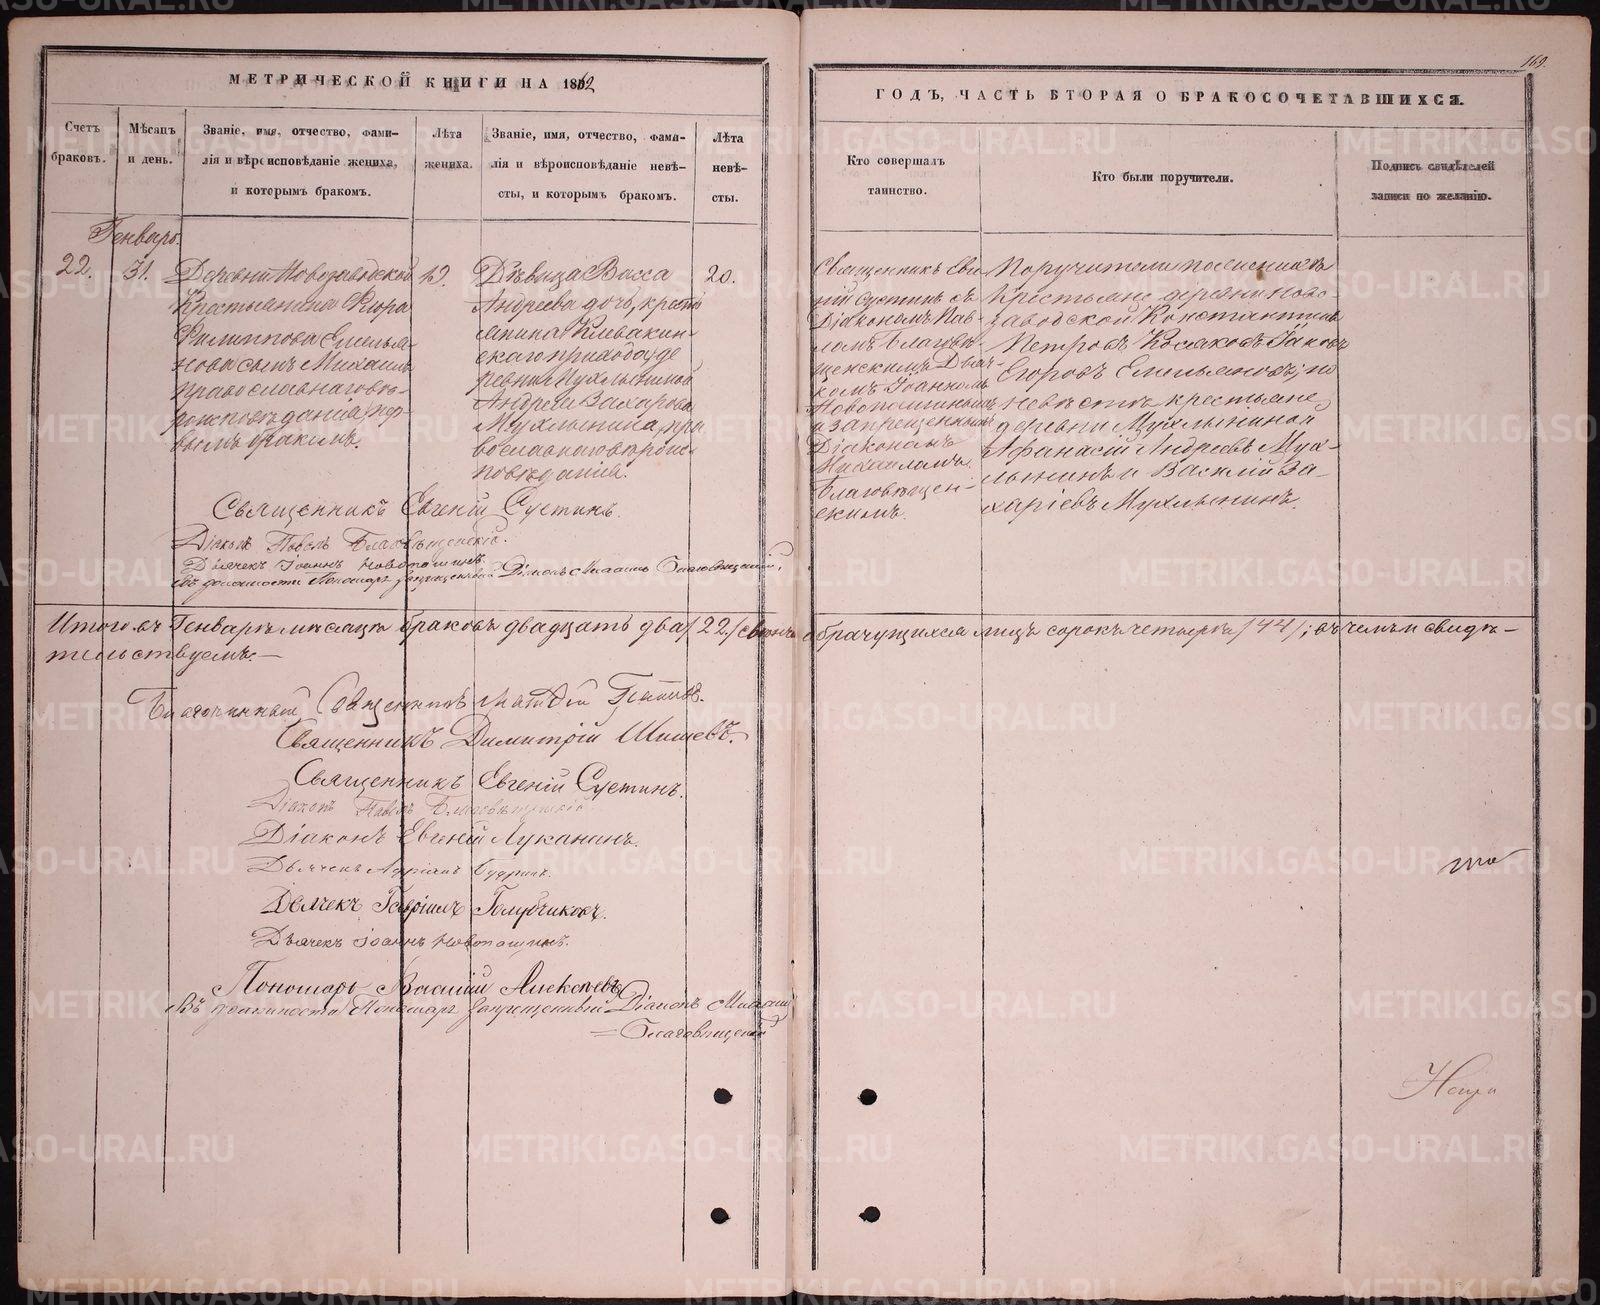 169.
МЕТРИЧЕСКОЙ КНИГИ НА 1862
ГОДЪ, ЧАСТЬ ВТОРАЯ О БРАКОСОЧЕТАВШИХСЯ.
Счетъ браковъ.
Мѣсяцъ и день.
Званіе, имя, отчество, фами-
лія и вѣроисповѣданіе жениха,
и которымъ бракомъ.
Лѣта жениха.
Званіе, имя, отчество, фами-
лія и вѣроисповѣданіе невѣ-
сты, и которымъ бракомъ.
Лѣта невѣ-
сты.
Кто совершалъ
таинство.
Кто были поручители.
Подпись свидѣтелей
записи по желанію.
Генварь.
22.
31.
Деревни Новозаводской
Крестьянина
Филиппова Емелья-
нова сынъ Михаилъ
православнаго вѣ-
роисповѣданія, пер-
вымъ бракомъ.
19.
Дѣвица Васса
Андреева дочь, кресть
янина Клевакин-
скаго прихода, де
ревни Мухлыниной
Андрея Захарова
Мухлынина, пра
вославнаго вѣроис-
повѣданія.
20.
Священникъ Евге
ній Сустинъ съ
Діакономъ Пав-
ломъ Благовѣ-
щенскимъ, Дьяч-
комъ Іоанномъ
Новопашинымъ
и запрещеннымъ
Діакономъ
Михаиломъ
Благовѣщен-
скимъ.
Поручители по женихѣ
Крестьяне деревни Ново-
заводской Константинъ
Петровъ Косаковъ, Іаковъ
Егоровъ Емельяновъ; по
невѣстѣ крестьяне
деревни Мухлыниной
Афанасій Андреевъ Мух-
лынинъ и Василій За-
харіевъ Мухлынинъ.
Священникъ Евгеній Сустинъ.
Діаконъ Павелъ Благовѣщенскій.
Дьячекъ Іоаннъ Новопашинъ.
Въ должности Пономаря запрещенный Діаконъ Михаилъ Благовѣщенскій.
Итого въ Генварѣ мѣсяцѣ браковъ двадцать два /22/ обрачущихся лицъ сорокъ четыре /44/; въ чемъ и свидѣ-
тельствуемъ.—
Благочинный Священникъ
Священникъ Димитрій Шишевъ.
Священникъ Евгеній Сустинъ.
Діаконъ Павелъ Благовѣщенскій
Діаконъ Евгеній Луканинъ.
Дьячекъ Адріанъ
Дьячекъ Гавріилъ Голубчиковъ.
Дьячекъ Іоаннъ Новопашинъ.
Пономарь Василій Алексѣевъ
Въ должности Пономаря запрещенный Діаконъ Михаилъ
Благовѣщенскій
METRIKI.GASO-URAL.RU